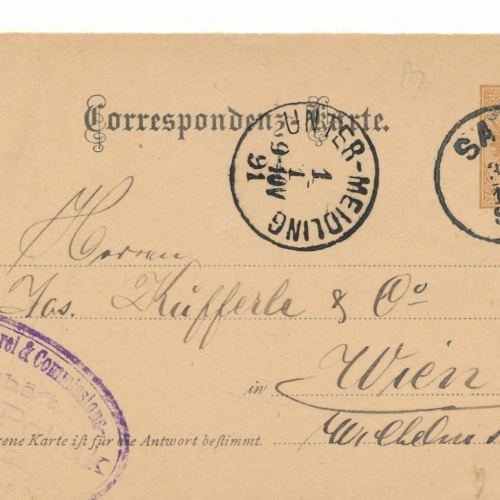 Correspondenz-Karte.
UNTER-MEIDLING
1
1
91
9-10V
SA
Herren
Jos. Küfferle & Co
in Wien
Wilhelms
rei & Commissions-
ene Karte ist für die Antwort bestimmt.